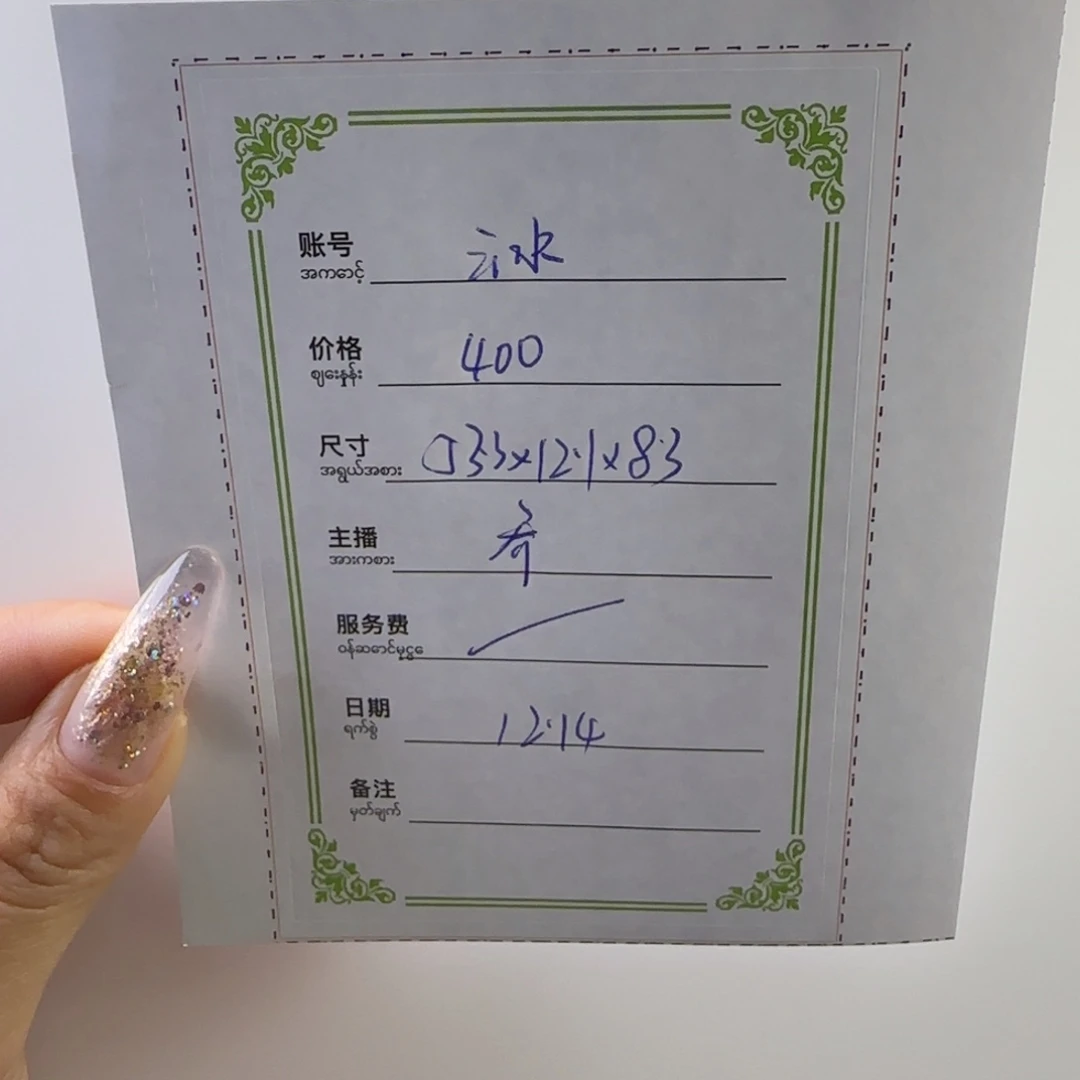 账号 云水
အကောင့်
价格 400
ဈေးနှုန်း
尺寸 533×12.1×8.3
အရွယ်အစား
主播 乔
အားကစား
服务费
ဝန်ဆောင်မှု
日期 12.14
ရက်စွဲ
备注
မှတ်ချက်